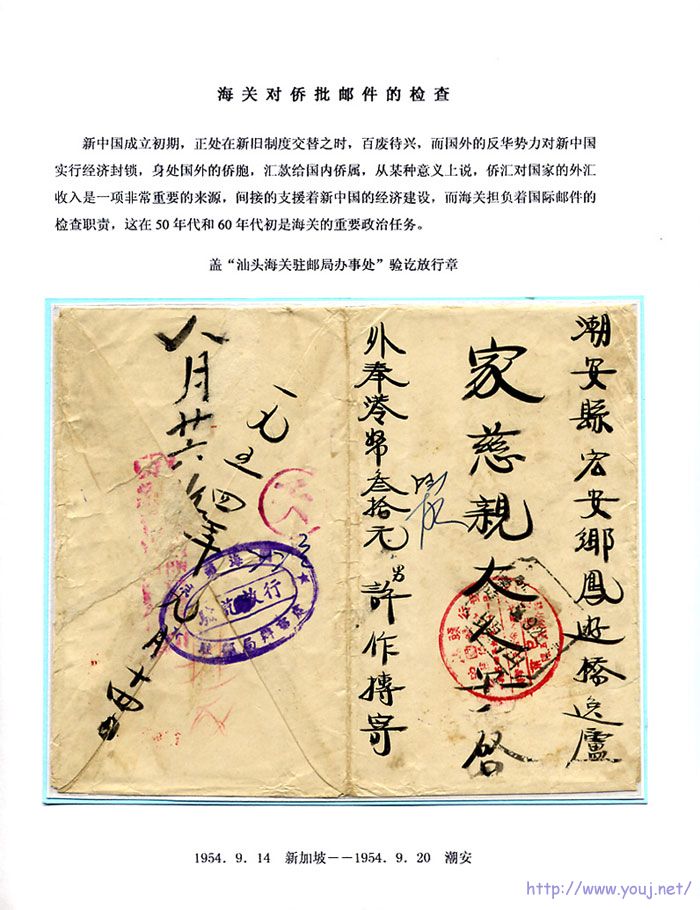 海关对侨批邮件的检查
新中国成立初期，正处在新旧制度交替之时，百废待兴，而国外的反华势力对新中国
实行经济封锁，身处国外的侨胞，汇款给国内侨属，从某种意义上说，侨汇对国家的外汇
收入是一项非常重要的来源，间接的支援着新中国的经济建设，而海关担负着国际邮件的
检查职责，这在50年代和60年代初是海关的重要政治任务。
盖“汕头海关驻邮局办事处”验讫放行章
潮安縣宏安鄉鳳 橋逸廬
家慈親大人 啓
外奉港幣叁拾元 男 許作摶寄
一九五四年九月十四
八月廿六
验讫放行
1954．9．14 新加坡－－1954．9．20 潮安
http://www.youj.net/